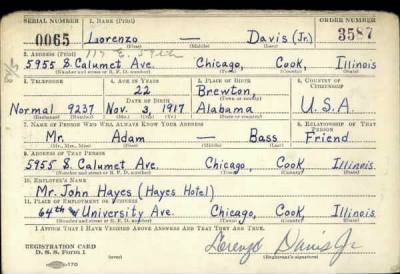 SERIAL NUMBER 1. NAME (Print) ORDER NUMBER
0065 Lorenzo — Davis (Jr.) 3587
(First) (Middle) (Last)
2. ADDRESS (Print)
5955 S. Calumet Ave. Chicago, Cook, Illinois
(Number and street or R. F. D. number) (Town) (County) (State)
3. TELEPHONE 4. AGE IN YEARS 5. PLACE OF BIRTH 6. COUNTRY OF CITIZENSHIP
22 Brewton
DATE OF BIRTH (Town or county)
Normal 9237 Nov. 3, 1917 Alabama U.S.A.
(Exchange) (Number) (Mo.) (Day) (Yr.) (State or country)
7. NAME OF PERSON WHO WILL ALWAYS KNOW YOUR ADDRESS 8. RELATIONSHIP OF THAT PERSON
Mr. Adam — Bass Friend
(Mr., Mrs., Miss) (First) (Middle) (Last)
9. ADDRESS OF THAT PERSON
5955 S. Calumet Ave. Chicago, Cook, Illinois
(Number and street or R. F. D. number) (Town) (County) (State)
10. EMPLOYER'S NAME
Mr. John Hayes (Hayes Hotel)
11. PLACE OF EMPLOYMENT OR BUSINESS
64th & University Ave. Chicago, Cook, Illinois
(Number and street or R. F. D. number) (Town) (County) (State)
I AFFIRM THAT I HAVE VERIFIED ABOVE ANSWERS AND THAT THEY ARE TRUE.
REGISTRATION CARD
D. S. S. Form 1 Lorenzo Davis Jr
(Registrant's signature)